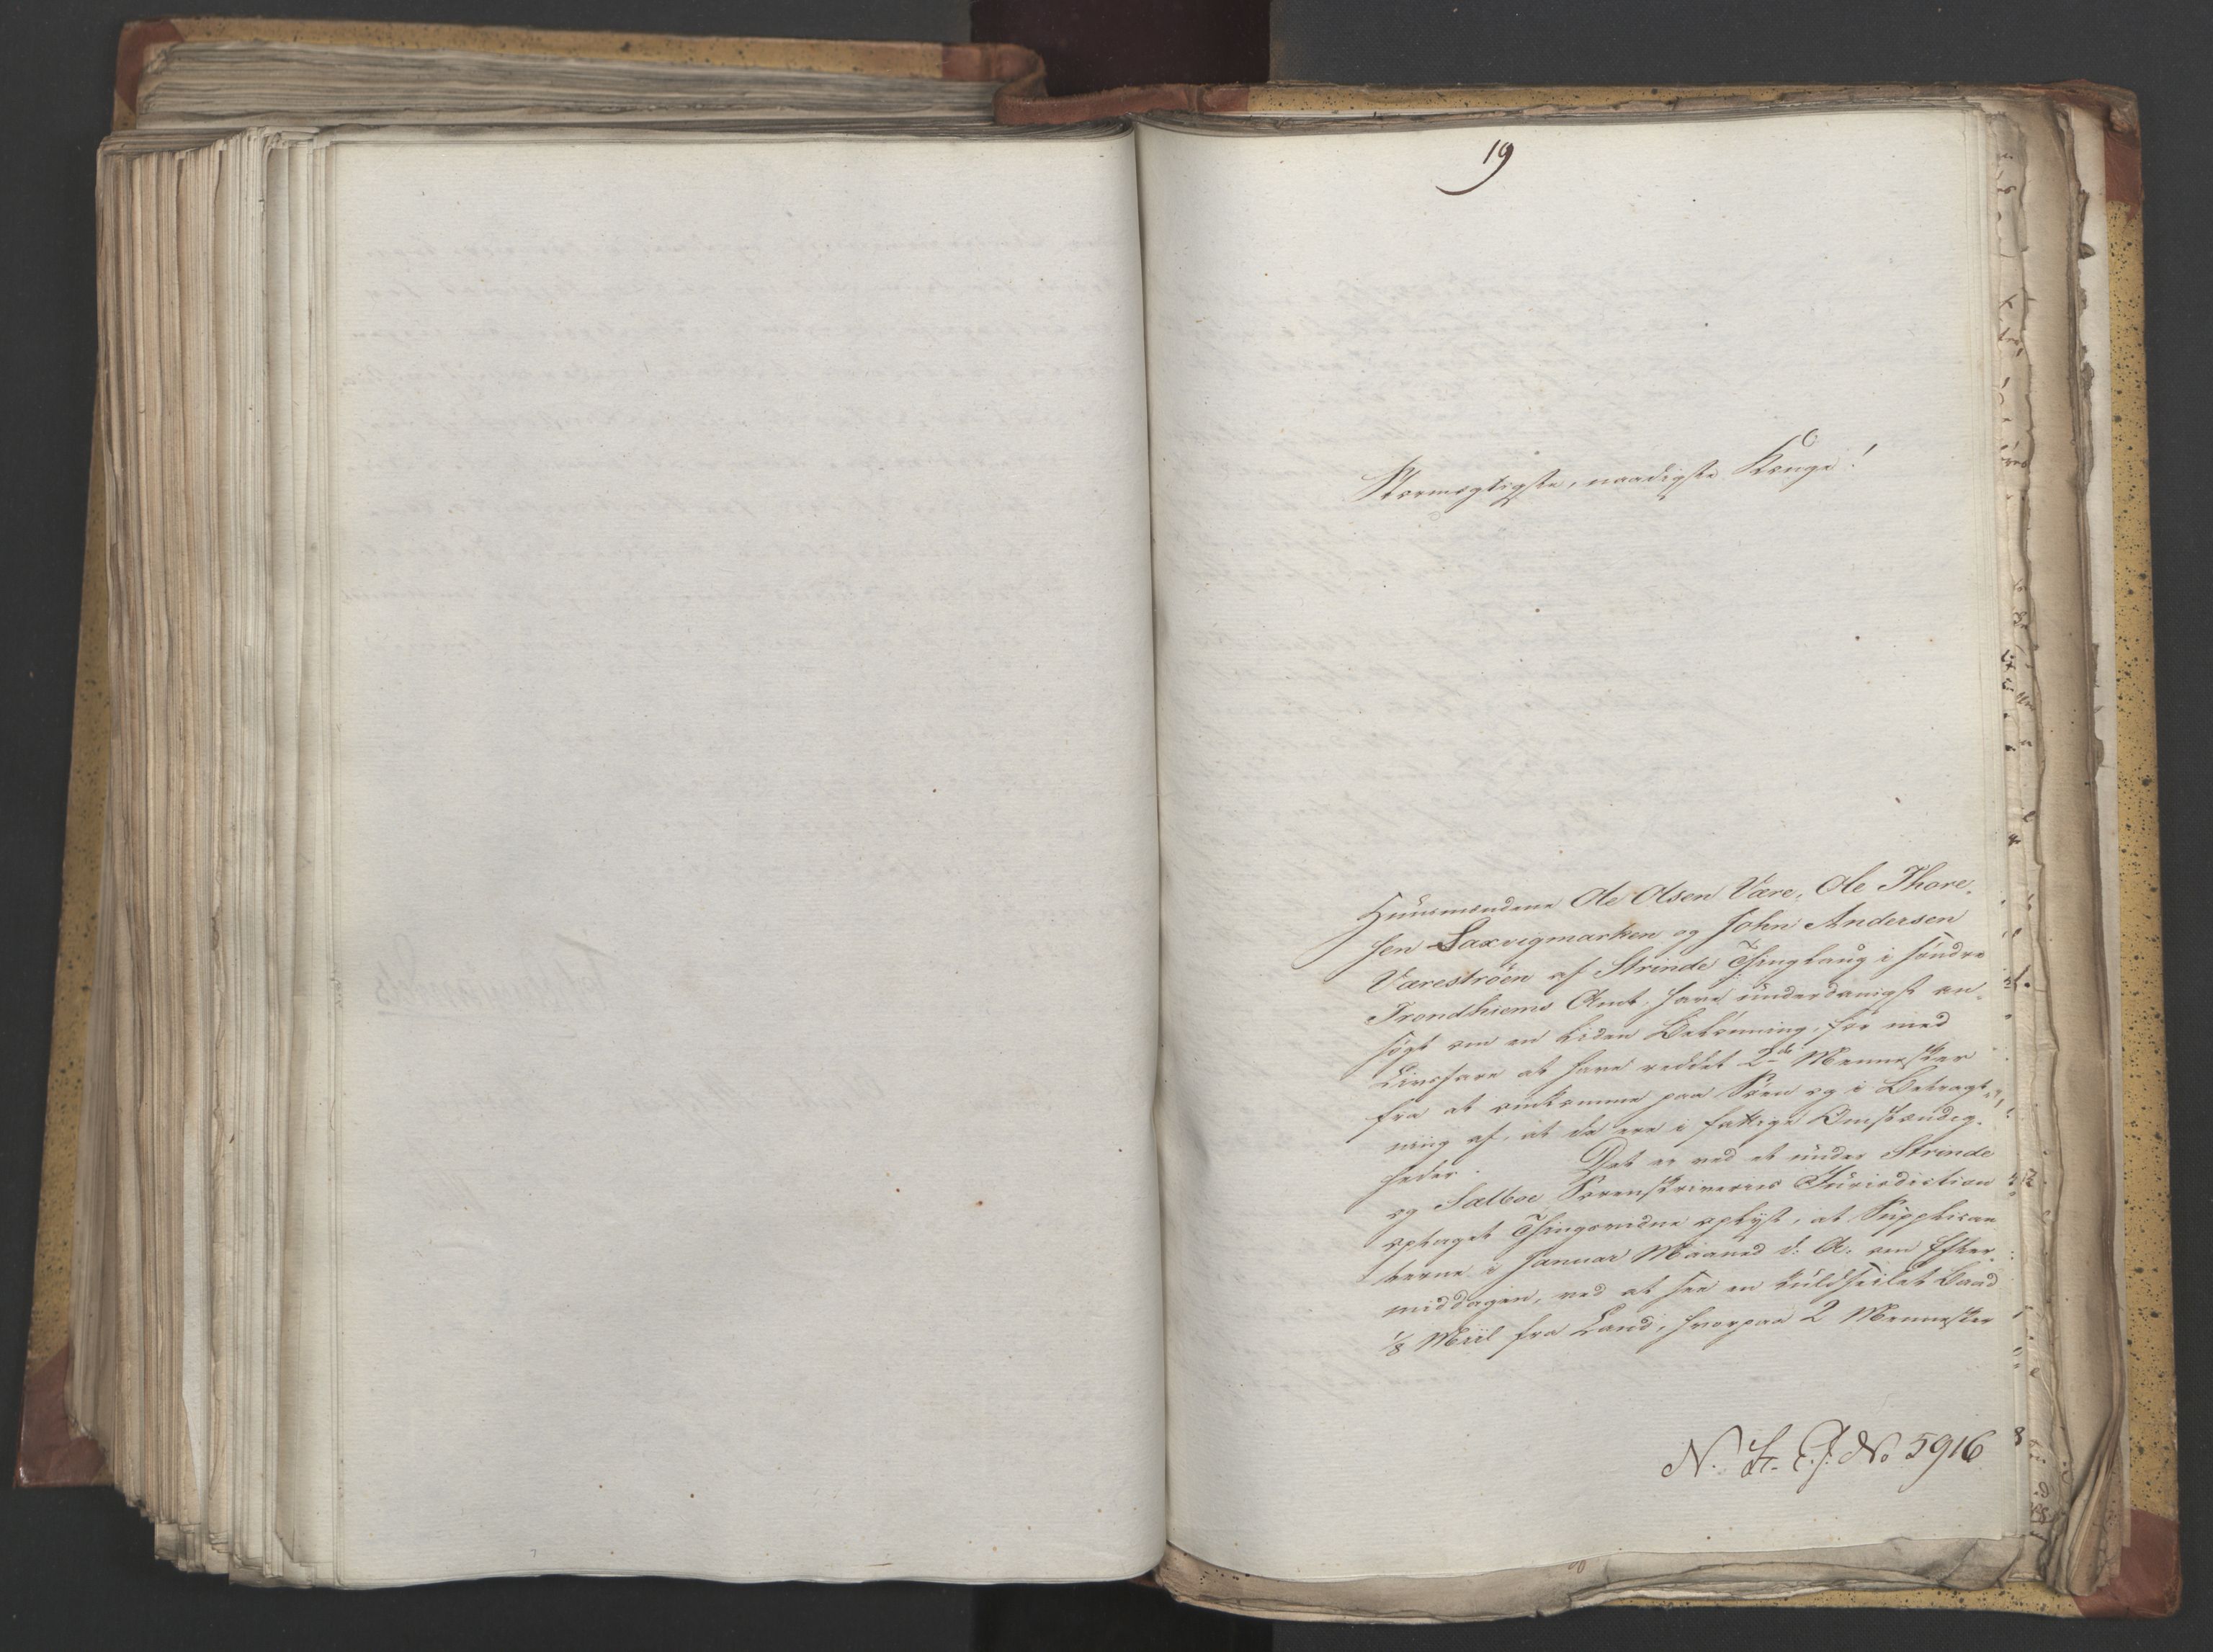 19
Stormægtigste, naadigste Konge!
Huusmændene Ole Olsen Være, Ole Thore-
sen Saxvigmarken og John Andersen
Værestrøen af Strinde Thinglaug i søndre
Trondhiems Amt, have underdanigst an-
søgt om en liden Belønning, for med
Livsfare at have reddet 2de Mennesker
fra at omkomme paa Søen og i Betragt-
ning af, at de ere i fattige Omstændig-
heder. Det er ved et under Strinde
og Sælboe Sorenskriveries Jurisdiction
optaget Thingsvidne oplyst, at Supplican-
terne i Januar Maaned d: A: om Efter-
middagen, ved at see en kuldseilet Baad
1/8 Miil fra Land, hvorpaa 2 Mennesker
N. F. C. J. No 5916